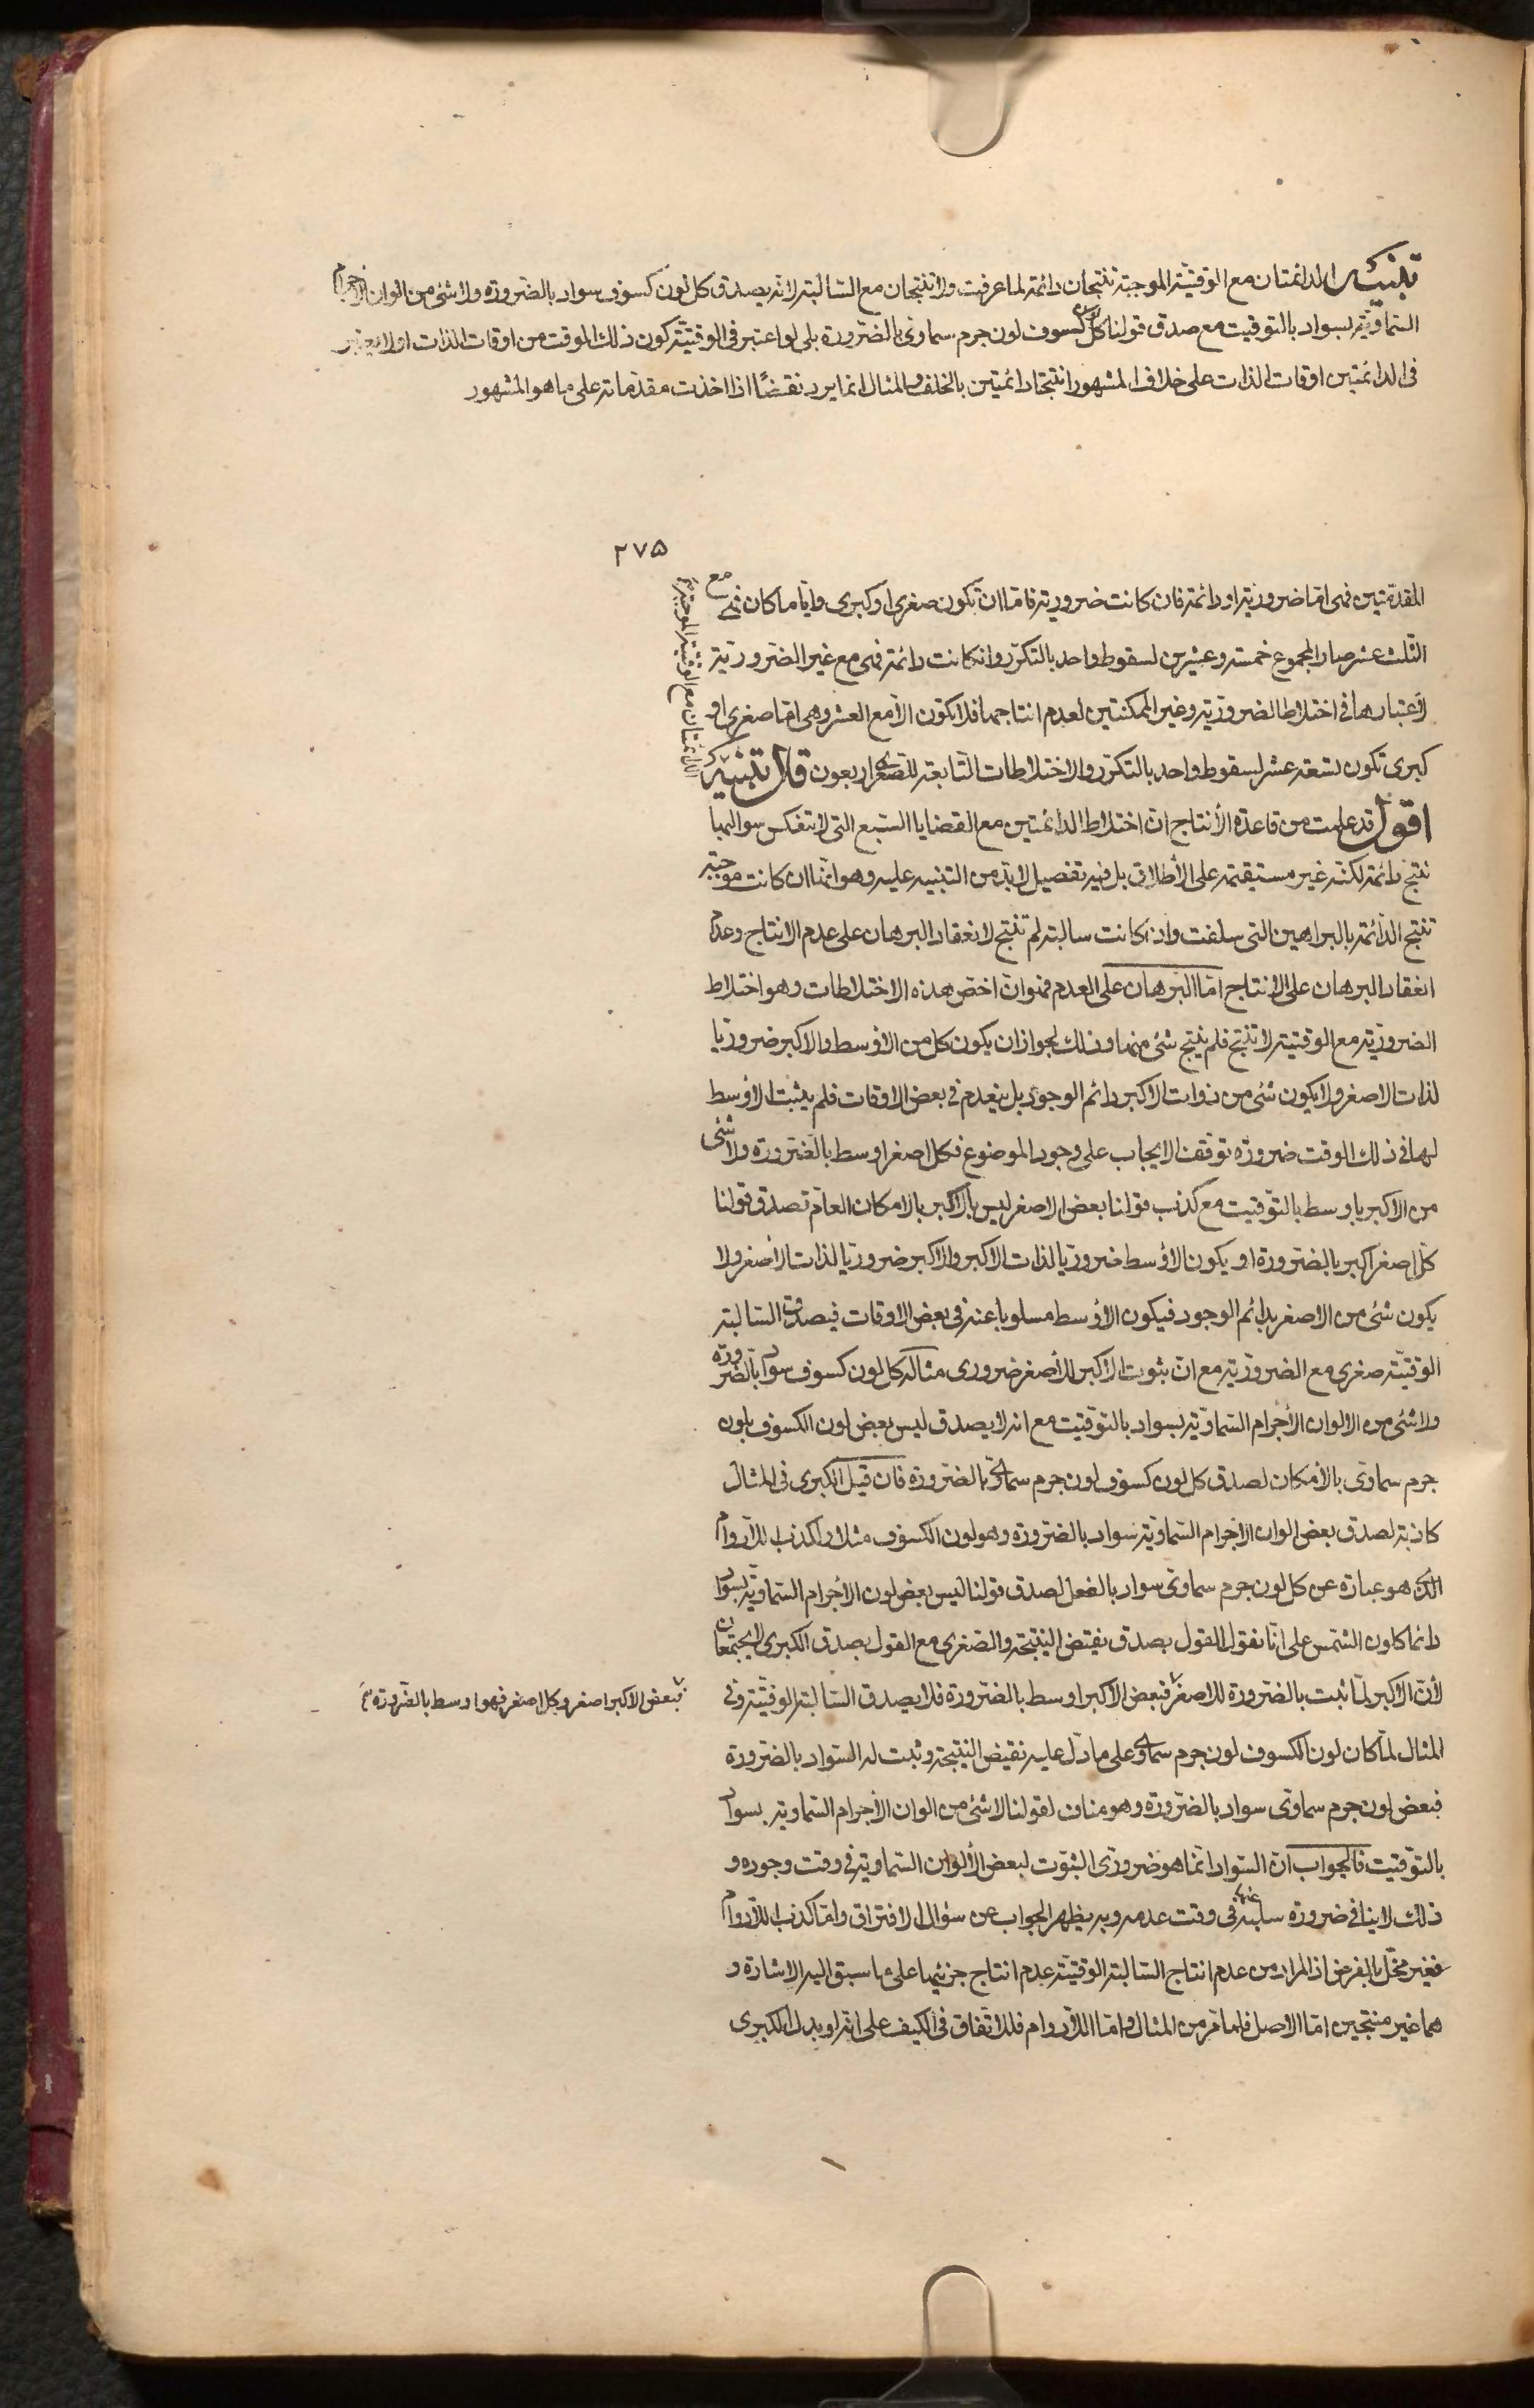 تنبيه الدائمتان مع الوقتية الموجبة تنتجان دائمة لما عرفت ولا تنتجان مع السالبة لانه يصدق كل لون كسوف سواد بالضرورة ولا شئ من الوان الاجرام
السماوية بسواد بالتوقيت مع صدق قولنا كل لون كسوف لون جرم سماوى بالضرورة بلى لو اعتبر فى الوقتية كون ذلك الوقت من اوقات الذات او لا يعتبر
فى الدائمتين اوقات الذات على خلاف المشهور انتجتا دائمتين بالخلف والمثال انما يرد نقضًا اذا اخذت مقدماته على ما هو المشهور
٢٧٥
المقدمتين فهى اما ضرورية او دائمة فان كانت ضرورية فاما ان تكون صغرى او كبرى وايا ما كان فهى مع
الثلث عشر صار المجموع خمسة وعشرين لسقوط واحد بالتكرر وان كانت دائمة فهى مع غير الضرورية
لاعتبارها فى اختلاط الضرورية وغير الممكنتين لعدم انتاجهما فلا تكون الا مع العشر وهى اما صغرى او
كبرى تكون تسعة عشر لسقوط واحد بالتكرر والاختلاطات التابعة للصغرى اربعون قال تنبيه
الدائمتان مع الوقتية الموجبة الخ
اقول قد علمت من قاعدة الأنتاج ان اختلاط الدائمتين مع القضايا السبع التى لا تنعكس سوالبها
ينتج دائمة لكنه غير مستقيمة على الأطلاق بل فيه تفصيل لا بد من التنبيه عليه وهو انها ان كانت موجبة
تنتج الدائمة بالبراهين التى سلفت وان كانت سالبة لم تنتج لانعقاد البرهان على عدم الانتاج وعدم
انعقاد البرهان على الانتاج اما البرهان على العدم فهو ان اخص هذه الاختلاطات وهو اختلاط
الضرورية مع الوقتية لا تنتج فلم ينتج شئ منها وذلك لجواز ان يكون كل من الاوسط والاكبر ضروريا
لذات الاصغر ولا يكون شئ من ذوات الاكبر دائم الوجود بل ينعدم فى بعض الاوقات فلم يثبت الأوسط
لها فى ذلك الوقت ضرورة توقف الايجاب على وجود الموضوع فكل اصغر اوسط بالضرورة ولا شئ
من الاكبر باوسط بالتوقيت مع كذب قولنا بعض الاصغر ليس باكبر بالامكان العام لصدق قولنا
كل اصغر اكبر بالضرورة او يكون الاوسط ضروريا لذات الاكبر والاكبر ضروريا لذات الأصغر ولا
يكون شئ من الاصغر بدائم الوجود فيكون الاوسط مسلوبا عنه فى بعض الاوقات فيصدق السالبة
الوقتية صغرى مع الضرورية مع ان ثبوت الاكبر للأصغر ضرورى مثاله كل لون كسوف سواد بالضرورة
ولا شئ من الالوان الأجرام السماوية بسواد بالتوقيت مع انه لا يصدق ليس بعض لون الكسوف بلون
جرم سماوى بالأمكان لصدق كل لون كسوف لون جرم سماوى بالضرورة فان قيل الكبرى فى المثال
كاذبة لصدق بعض الوان الأجرام السماوية سواد بالضرورة وهو لون الكسوف مثلا ولكذب اللادوام
الذى هو عبارة عن كل لون جرم سماوى سواد بالفعل لصدق قولنا ليس بعض لون الأجرام السماوية بسواد
دائما كلون الشمس على انا نقول القول بصدق نقيض النتيجة والصغرى مع القول بصدق الكبرى لا يجتمعان
لأن الاكبر لما ثبت بالضرورة للاصغر فبعض الاكبر اوسط بالضرورة فلا يصدق السالبة الوقتية وفى
فبعض الاكبر اصغر وكل اصغر فهو اوسط بالضرورة
المثال لما كان لون الكسوف لون جرم سماوى على ما دل عليه نقيض النتيجة وثبت له السواد بالضرورة
فبعض لون جرم سماوى سواد بالضرورة وهو مناف لقولنا لا شئ من الوان الأجرام السماوية بسواد
بالتوقيت فالجواب ان السواد انما هو ضرورى الثبوت لبعض الألوان السماوية فى وقت وجوده و
ذلك لا ينافى ضرورة سلبه عنه فى وقت عدمه وبه يظهر الجواب عن سؤال الافتراق واما كذب اللادوام
فغير مخل بالغرض اذ المراد من عدم انتاج السالبة الوقتية عدم انتاج جزئيها على ما سبق اليه الاشارة و
هما غير منتجين اما الاصل فلما مر من المثال واما اللادوام فللاتفاق فى الكيف على انه لو بدل الكبرى